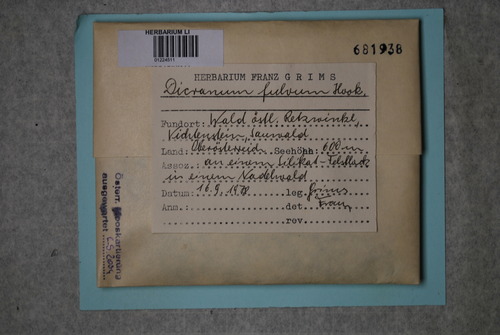 HERBARIUM LI
681938
HERBARIUM FRANZ GRIMS
Dicranum fulvum Hook.
Fundort: Wald östl. Retzwinkl,
Vichtenstein, Sauwald
Land: Oberösterreich Seehöhe 600 m
Assoz.: an einem Silikat-Felsblock
in einem Nadelwald
Datum: 16.9.1978 leg. Grims
Anm.: det. Franz
rev.
Österr. Mooskartierung
ausgewertet